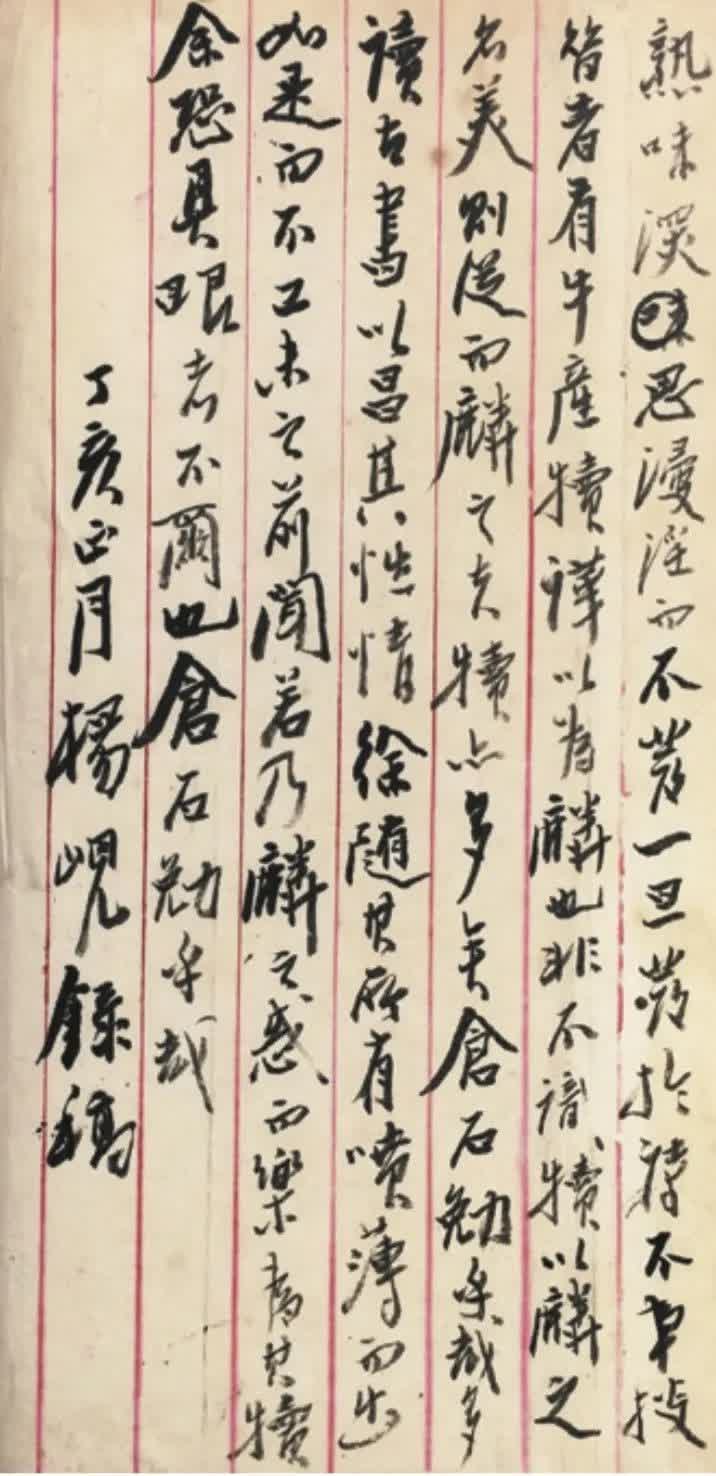 熟味深味思漫淫而不芳一旦芳於詩不早授
昔者有牛產犢譁以為麟也非不識犢以麟之
名美則從而麟之夫犢亦多矣倉石勉乎哉多
讀古書以昌其性情徐隨其所有噴薄而出
如是而不工未之前聞若乃麟之惑而樂為其犢
余恐具眼者不爾也倉石勉乎哉
丁亥正月楊峴錄稿